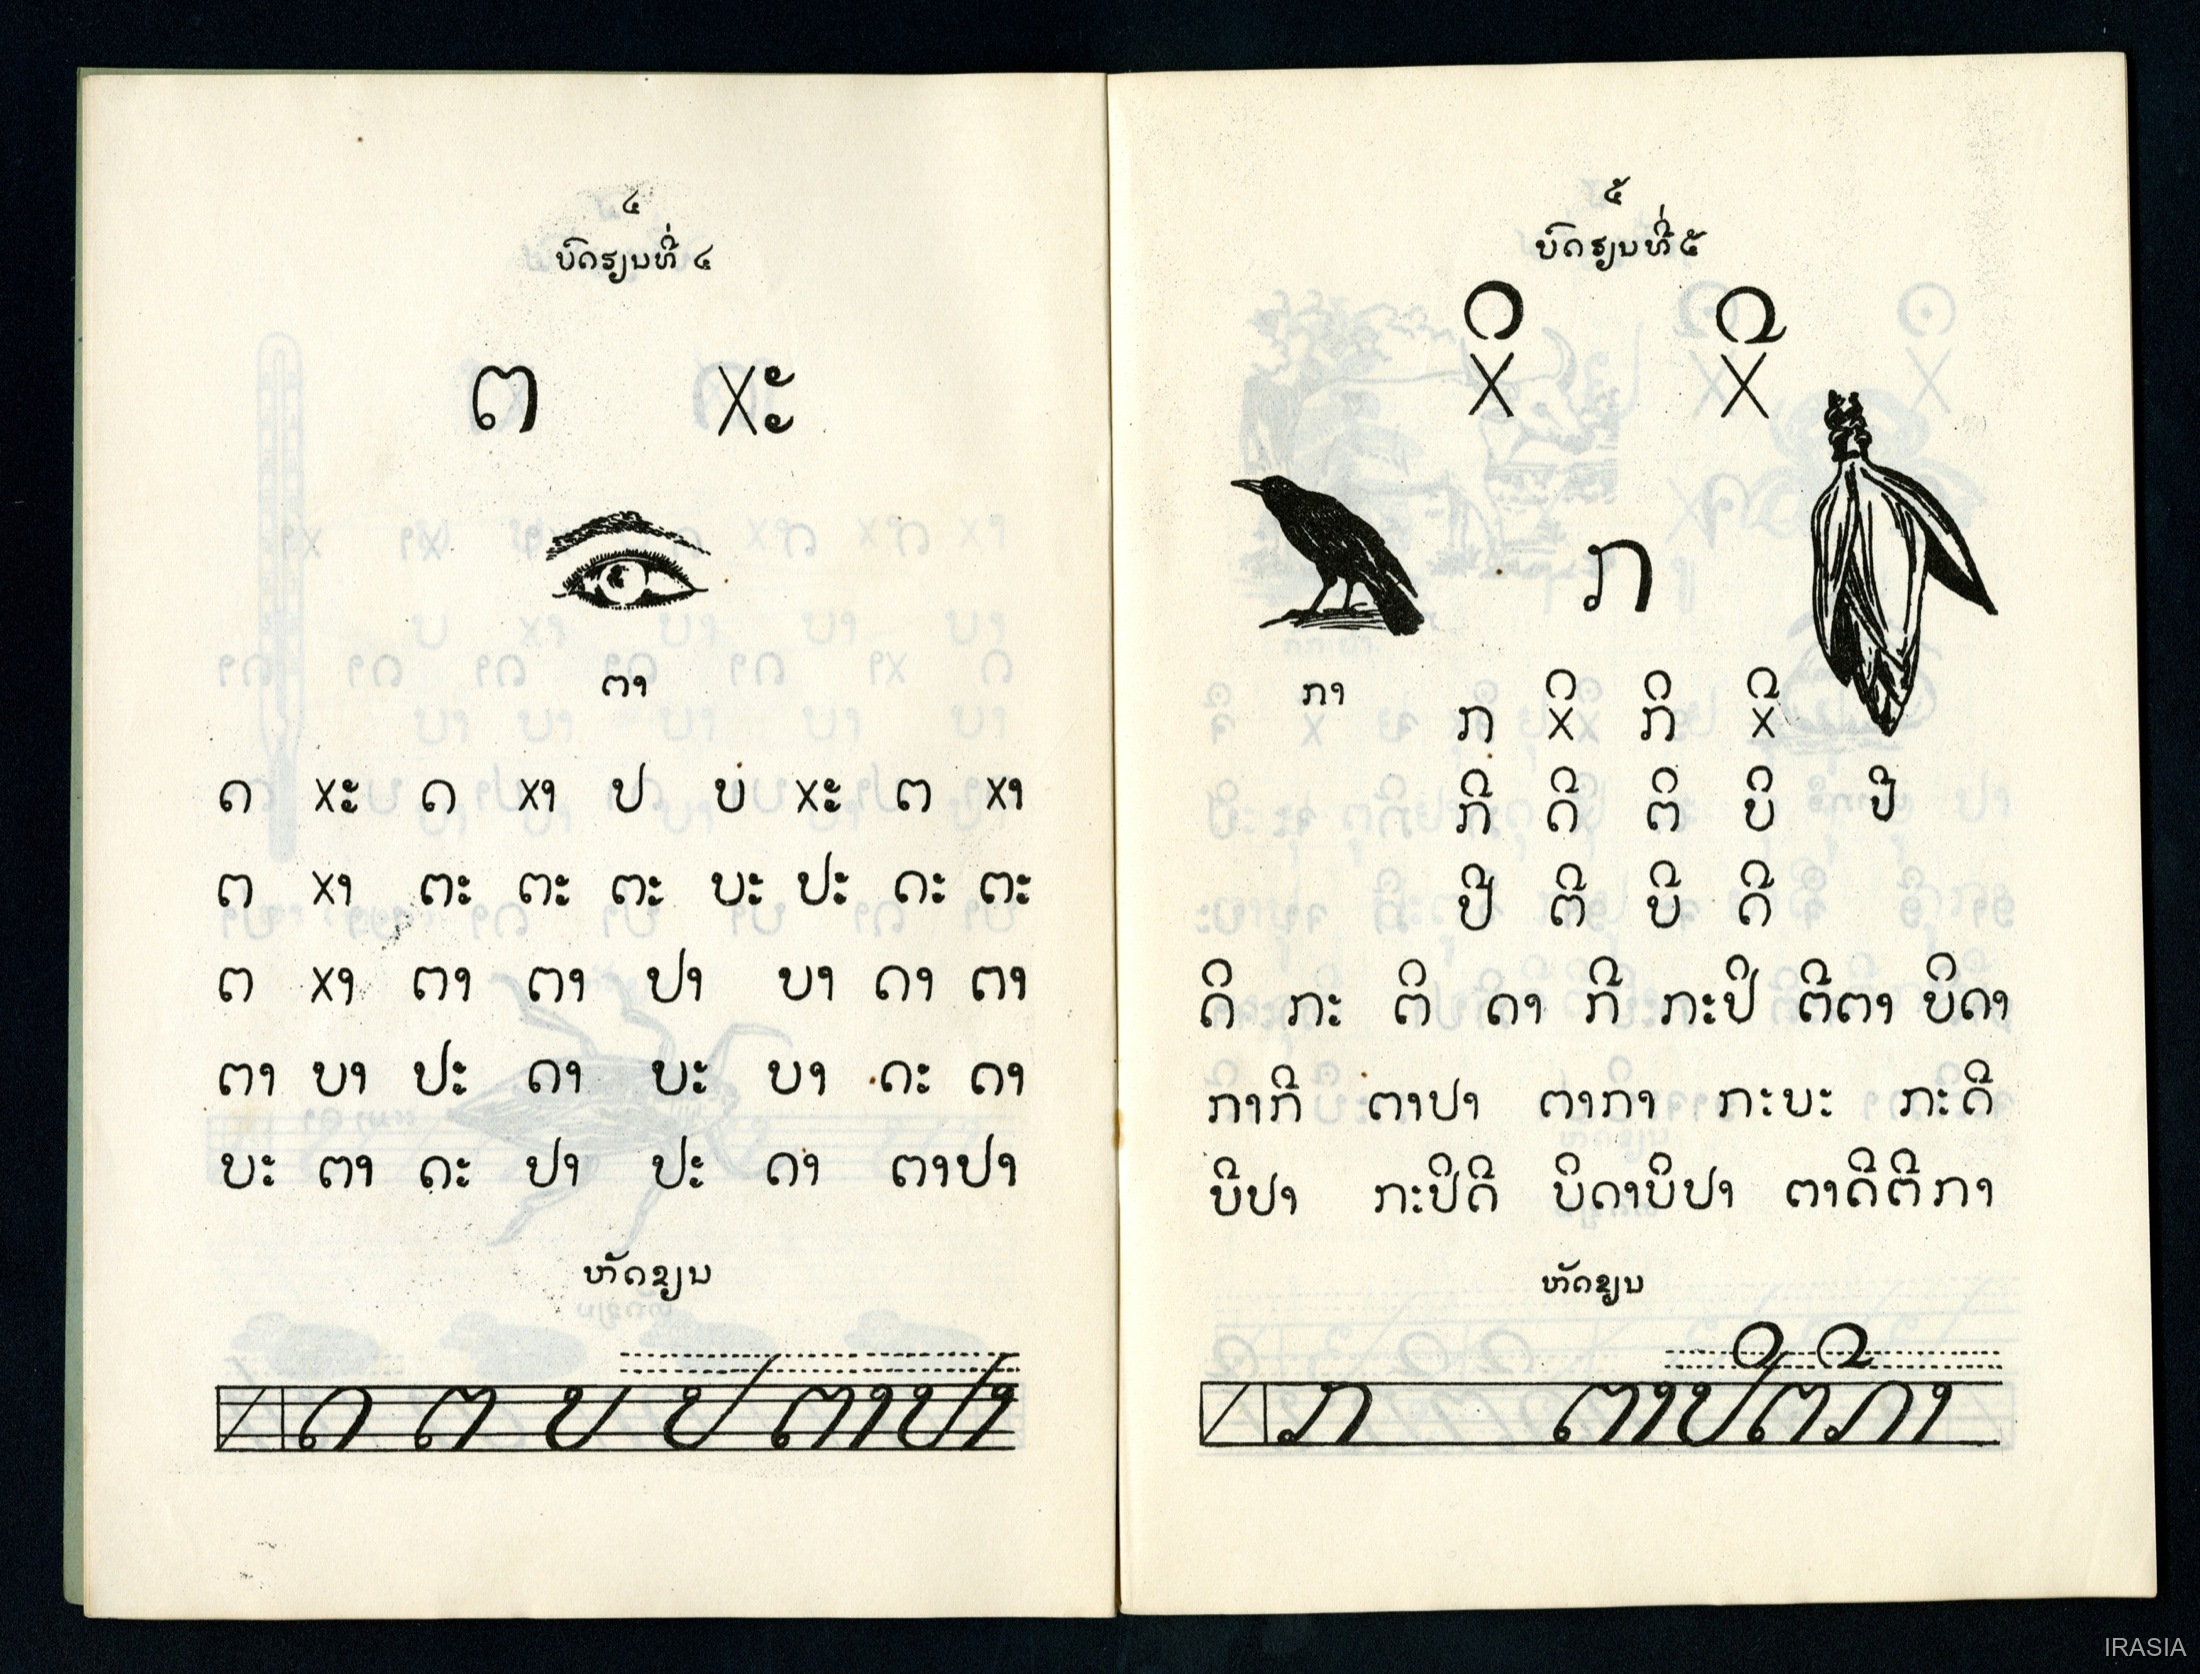 ໔
ບົດຮຽນທີ່ ໔
ຕ xະ
ຕາ
ດ xະ ດ xາ ປ ບ xະ ຕ xາ
ຕ xາ ຕະ ຕະ ຕະ ບະ ປະ ດະ ຕະ
ຕ xາ ຕາ ຕາ ປາ ບາ ດາ ຕາ
ຕາ ບາ ປະ ດາ ບະ ບາ ດະ ດາ
ບະ ຕາ ດະ ປາ ປະ ດາ ຕາປາ
ຫັດຂຽນ
ດ ຕ ບ ປ ຕາປາ
໕
ບົດຮຽນທີ່ ໕
xິ xີ
ກ
ກາ
ກ xິ ກິ xີ
ກີ ດິ ຕິ ບິ ປີ
ປີ ຕີ ບີ ດີ
ດິ ກະ ຕິ ດາ ກີ ກະປິ ຕີຕາ ບິດາ
ກາກີ ຕາປາ ຕາກາ ກະບະ ກະດີ
ບີປາ ກະປິດີ ບິດາບິປາ ຕາດີຕີກາ
ຫັດຂຽນ
ກ ຕາປິຕີກາ
IRASIA